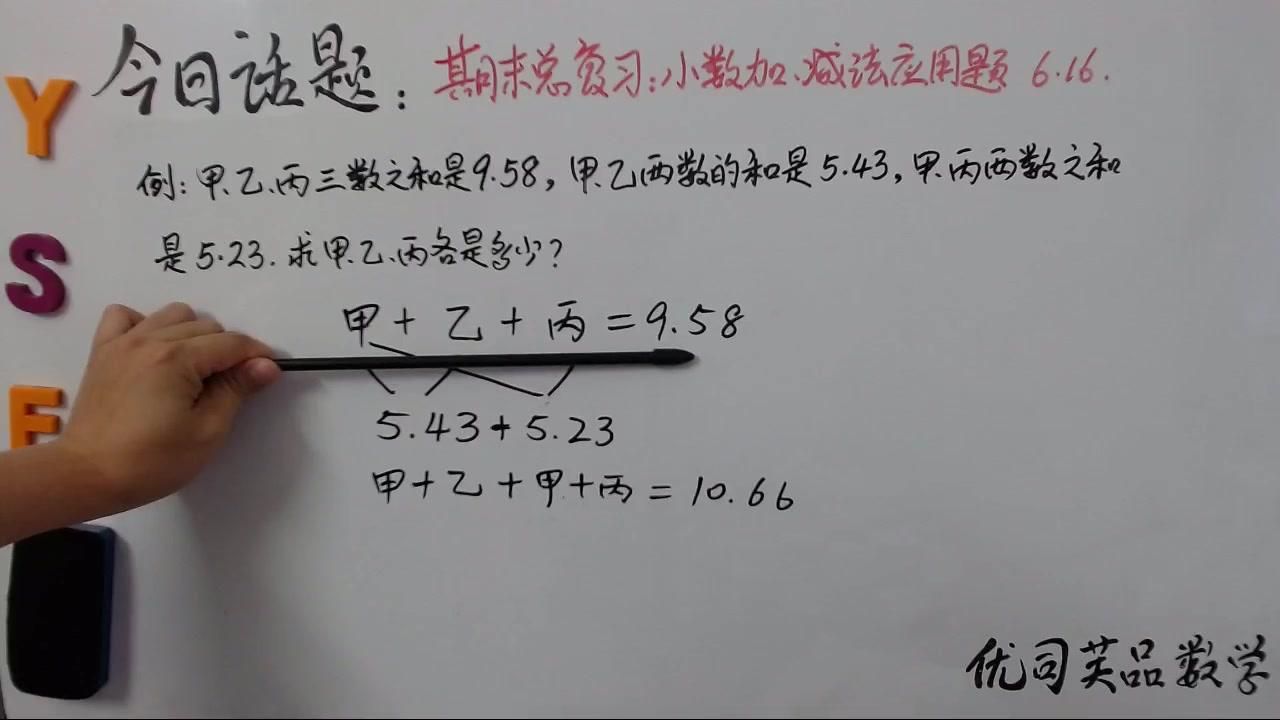 今日话题：期末总复习：小数加、减法应用题 6.16.
例：甲、乙、丙三数之和是9.58，甲、乙两数的和是5.43，甲、丙两数之和
是5.23. 求甲、乙、丙各是多少？
甲 + 乙 + 丙 = 9.58
5.43 + 5.23
甲 + 乙 + 甲 + 丙 = 10.66
Y
S
E
优司英品数学